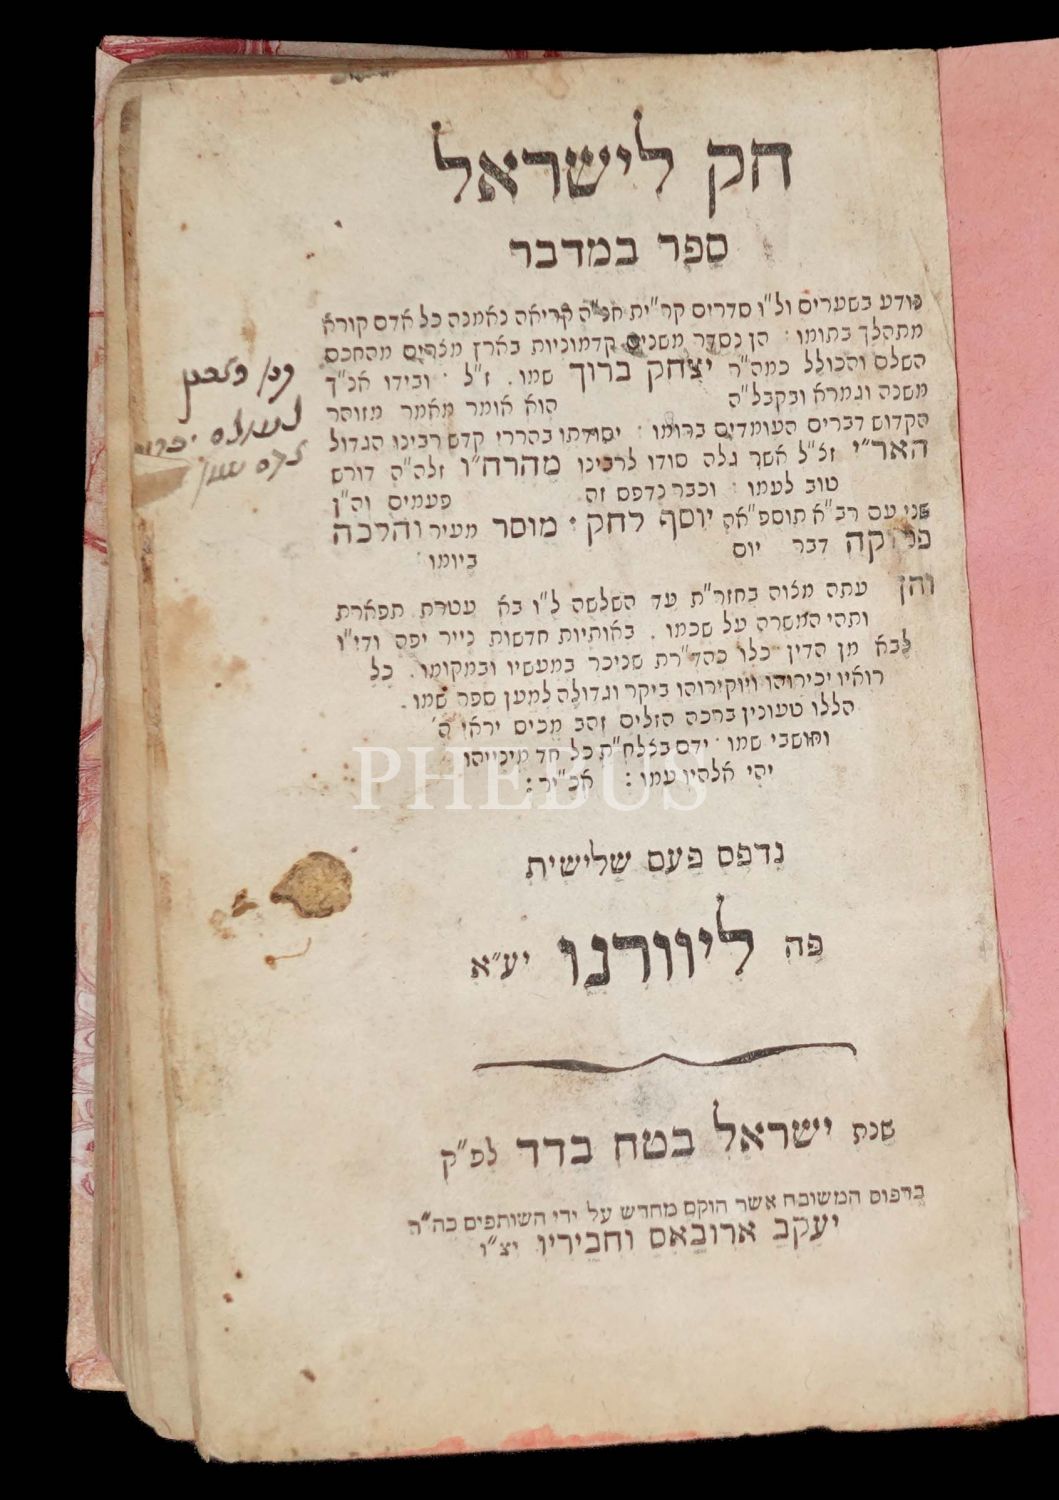 חק לישראל
ספר במדבר
נודע בשערים ול"ו סדרים קר"ית חנ"ה קריאה נאמנה כל אדם קורא
מתהלך בתומו · הן נסדר משנים קדמוניות בארץ מצרים מהחכם
השלם והכולל כמה"ר יצחק ברוך שמו . ז"ל · ובידו אנ"ך
משנה וגמרא ובקבל"ה הוא אומר מאמר מזוהר
הקדוש דברים העומדים ברומו · יסודתו בהררי קדש רבינו הגדול
האר"י זצ"ל אשר גלה סודו לרבינו מהרח"ו זלה"ה דורש
טוב לעמו · וכבר נדפס זה פעמים וה"ן
שני עם רב"א תוספ"אה יוסף לחק · מוסר מעיר והלכה
פסוקה דבר יום ביומו ·
והן עתה מצוה בחזר"ת עד השלשה ל"ו בא עטרת תפארת
ותהי המשרה על שכמו . באותיות חדשות נייר יפה ודי"ו
לבא מן הדין כלו כהד"רת שניכר במעשיו ובמקומו . כל
רואיו יכירוהו ויוקירוהו ביקר וגדולה למען ספר שמו .
הללו טעונין ברכה הזלים זהב מכים יראי ה'
וחושבי שמו · ידם בצלח"ת כל חד מינייהו
יהי אלהיו עמו : אכ"יר :
PHEBUS
נדפס פעם שלישית
פה ליוורנו יע"א
שנת ישראל בטח בדד לפ"ק
ברפוס המשובח אשר הוקם מחדש על ידי השותפים כה"ר
יעקב ארובאס וחביריו יצ"ו